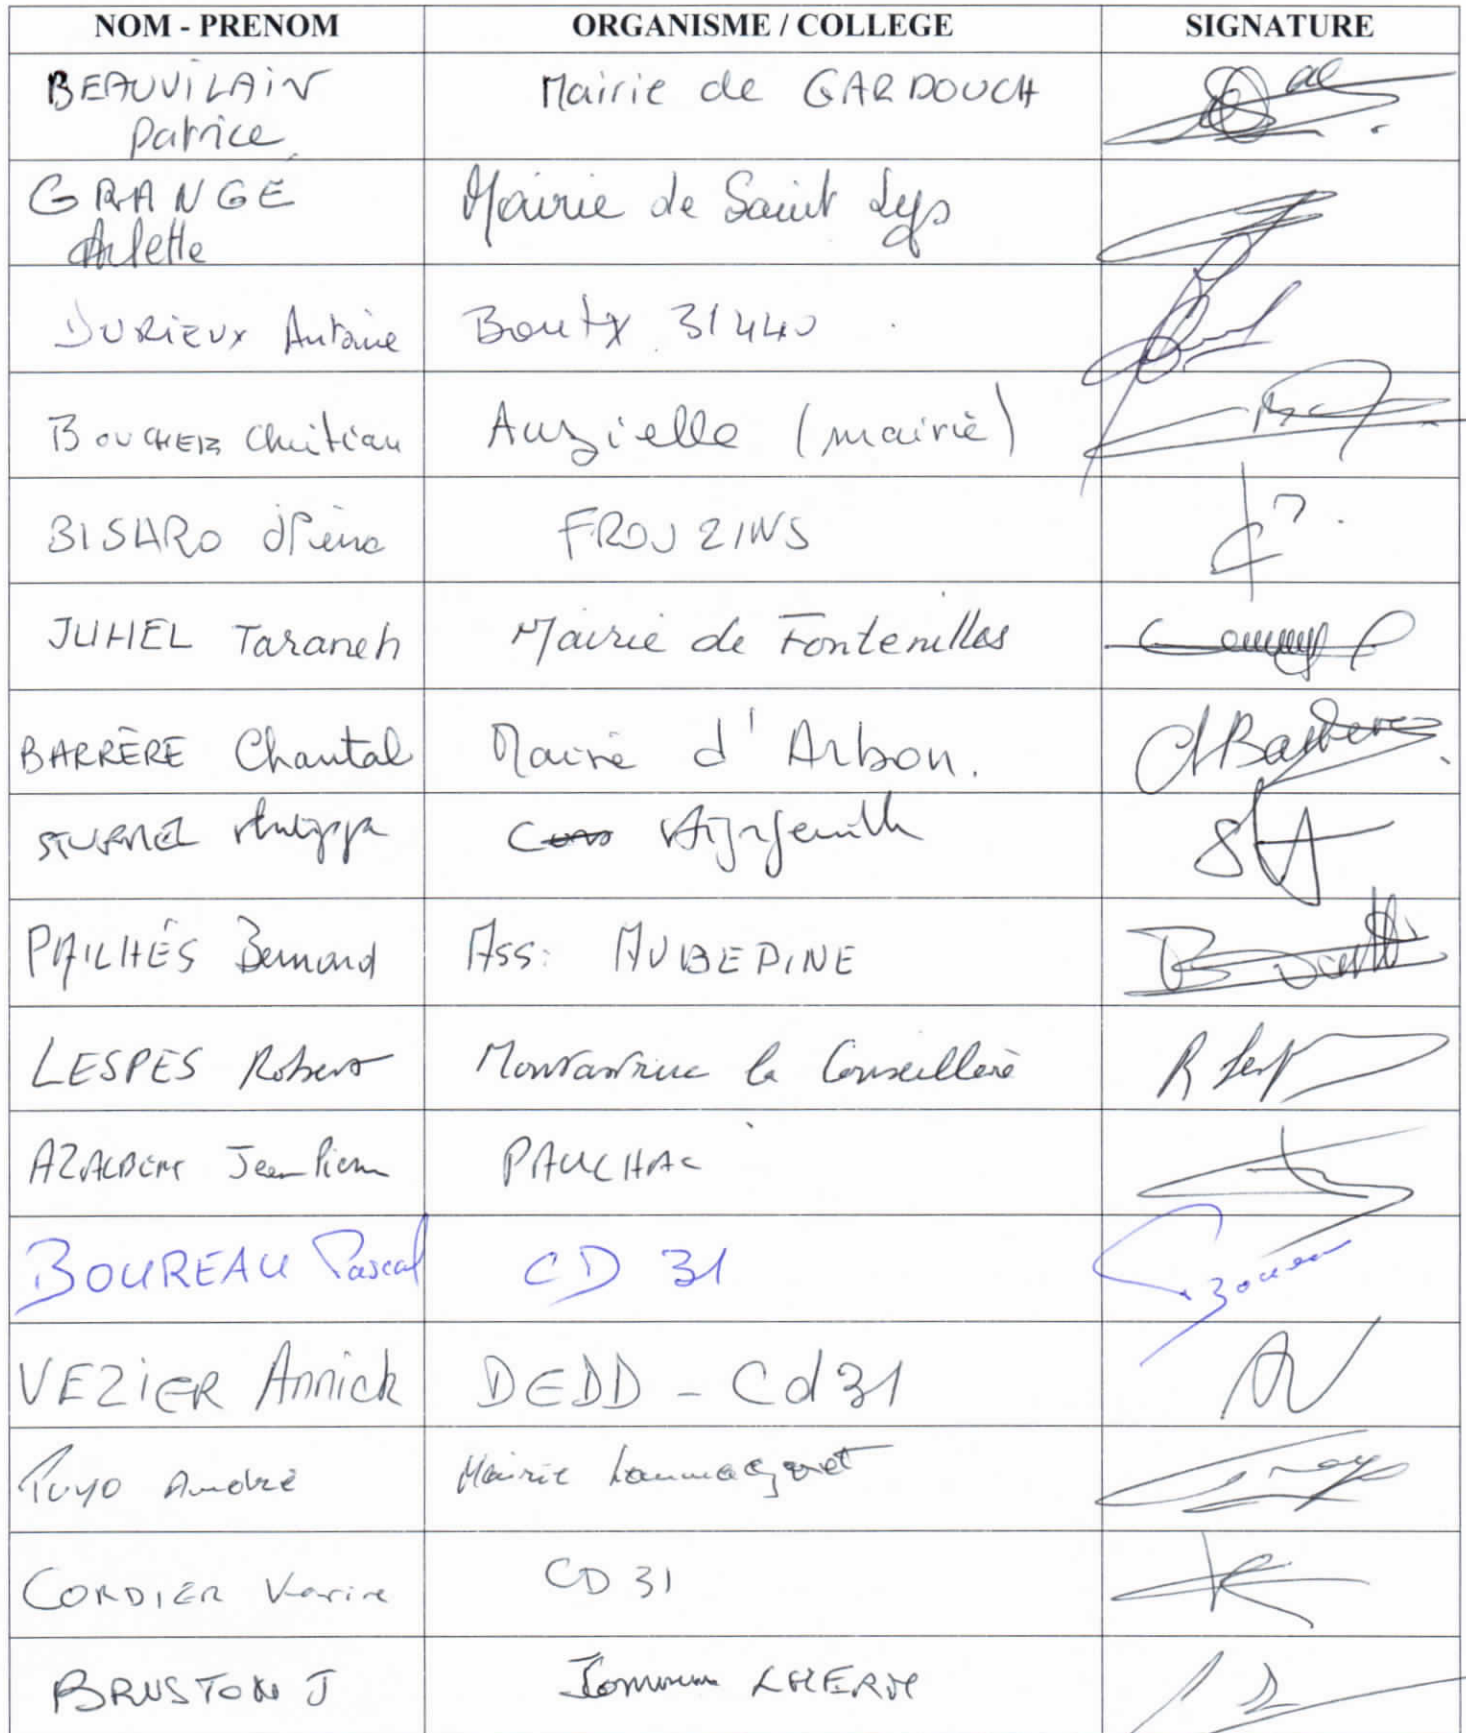 NOM - PRENOM ORGANISME / COLLEGE SIGNATURE
BEAUVILAIN Mairie de GARDOUCH
Patrice
GRANGÉ Mairie de Saint Lys
Arlette
DURIEUX Antoine Boutx 31440
BOUCHER Christian Auzielle (mairie)
BISARO JPierre FROUZINS
JUHEL Taraneh Mairie de Fontenilles
BARRÈRE Chantal Mairie d'Arbon.
Philippe Aigrefeuille
PAILHÉS Bernard Ass: AUBEPINE
LESPES Robert Montastruc la Conseillère
AZALBERT Jean Pierre PAULHAC
BOUREAU Pascal CD 31
VEZIER Annick DEDD - Cd31
PUYO André Mairie
CORDIER Karine CD 31
BRUSTON J Commune LHERM